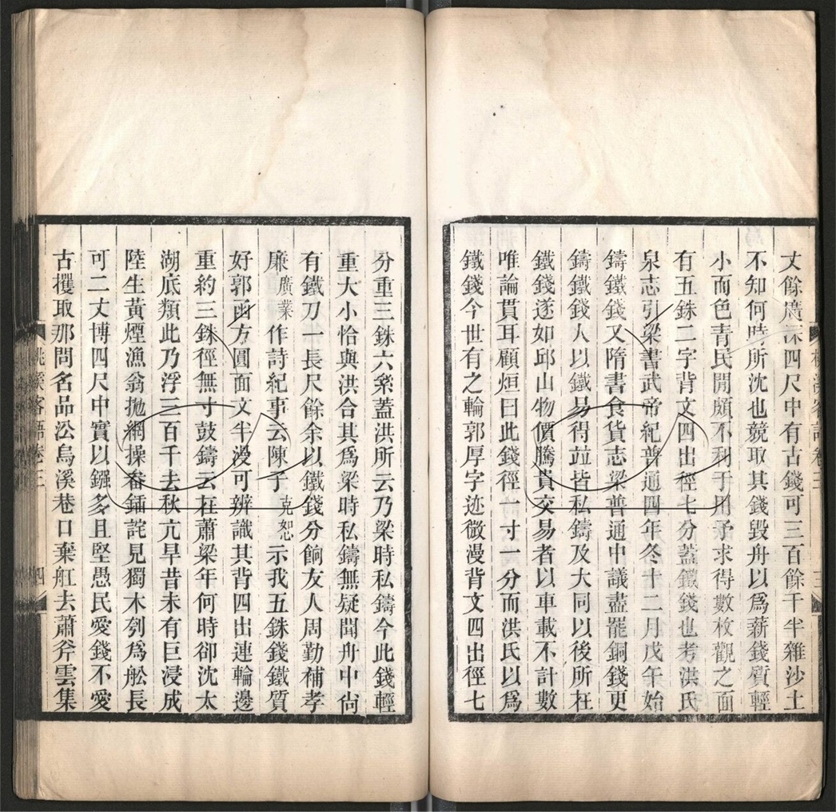 丈餘廣深四尺中有古錢可三百餘千半雜沙土
不知何時所沈也競取其錢毀舟以爲薪錢質輕
小而色青民閒頗不利于用予求得數枚觀之面
有五銖二字背文四出徑七分蓋鐵錢也考洪氏
泉志引梁書武帝紀普通四年冬十二月戊午始
鑄鐵錢又隋書食貨志梁普通中議盡罷銅錢更
鑄鐵錢人以鐵易得並皆私鑄及大同以後所在
鐵錢遂如邱山物價騰貴交易者以車載不計數
唯論貫耳顧烜曰此錢徑一寸一分而洪氏以爲
鐵錢今世有之輪郭厚字迹微漫背文四出徑七
桃溪客語卷三 三
分重三銖六絫蓋洪所云乃梁時私鑄今此錢輕
重大小恰與洪合其爲梁時私鑄無疑聞舟中尙
有鐵刀一長尺餘余以鐵錢分餉友人周勤補孝
廉廣業作詩紀事云陳子克恕示我五銖錢鐵質
好郭函方圓面文半漫可辨識其背四出連輪邊
重約三銖徑無寸鼓鑄云在蕭梁年何時卻沈太
湖底類此乃浮三百千去秋亢旱昔未有巨浸成
陸生黃煙漁翁拋網操畚鍤詫見獨木刳爲舩長
可二丈博四尺中實以鏹多且堅愚民愛錢不愛
古攫取那問名品沿烏溪巷口棄舡去蕭斧雲集
桃溪客語卷三 四